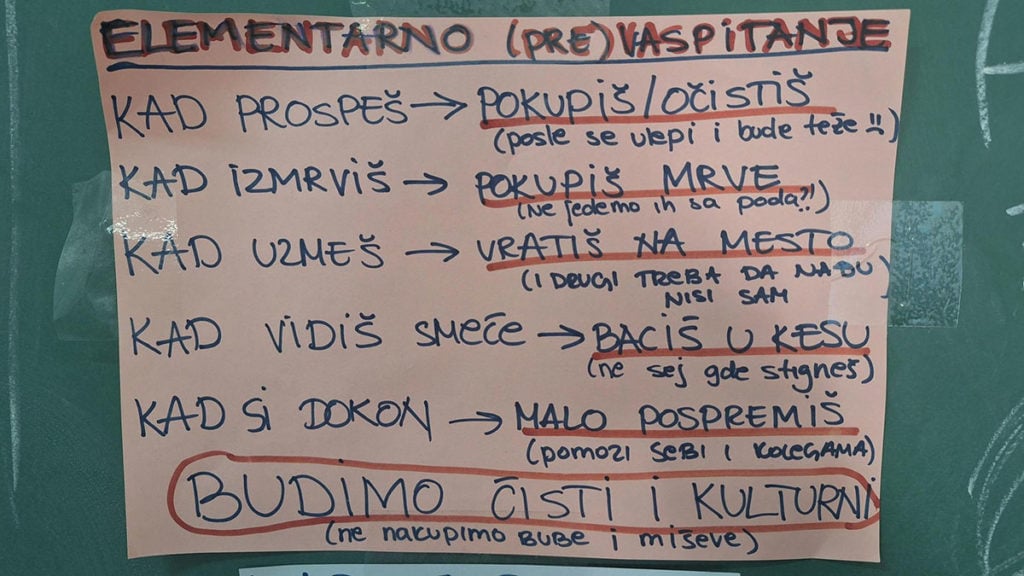 ELEMENTARNO (PRE)VASPITANJE
KAD PROSPEŠ → POKUPIŠ/OČISTIŠ
(posle se ulepi i bude teže!!)
KAD IZMRVIŠ → POKUPIŠ MRVE
(Ne jedemo ih sa poda?!)
KAD UZMEŠ → VRATIŠ NA MESTO
(I DRUGI TREBA DA NAĐU
NISI SAM
KAD VIDIŠ SMEĆE → BACIŠ U KESU
(ne sej gde stigneš)
KAD SI DOKON → MALO POSPREMIŠ
(pomozi SEBI I KOLEGAMA)
BUDIMO ČISTI I KULTURNI
(ne nakupimo BUBE i miševe)